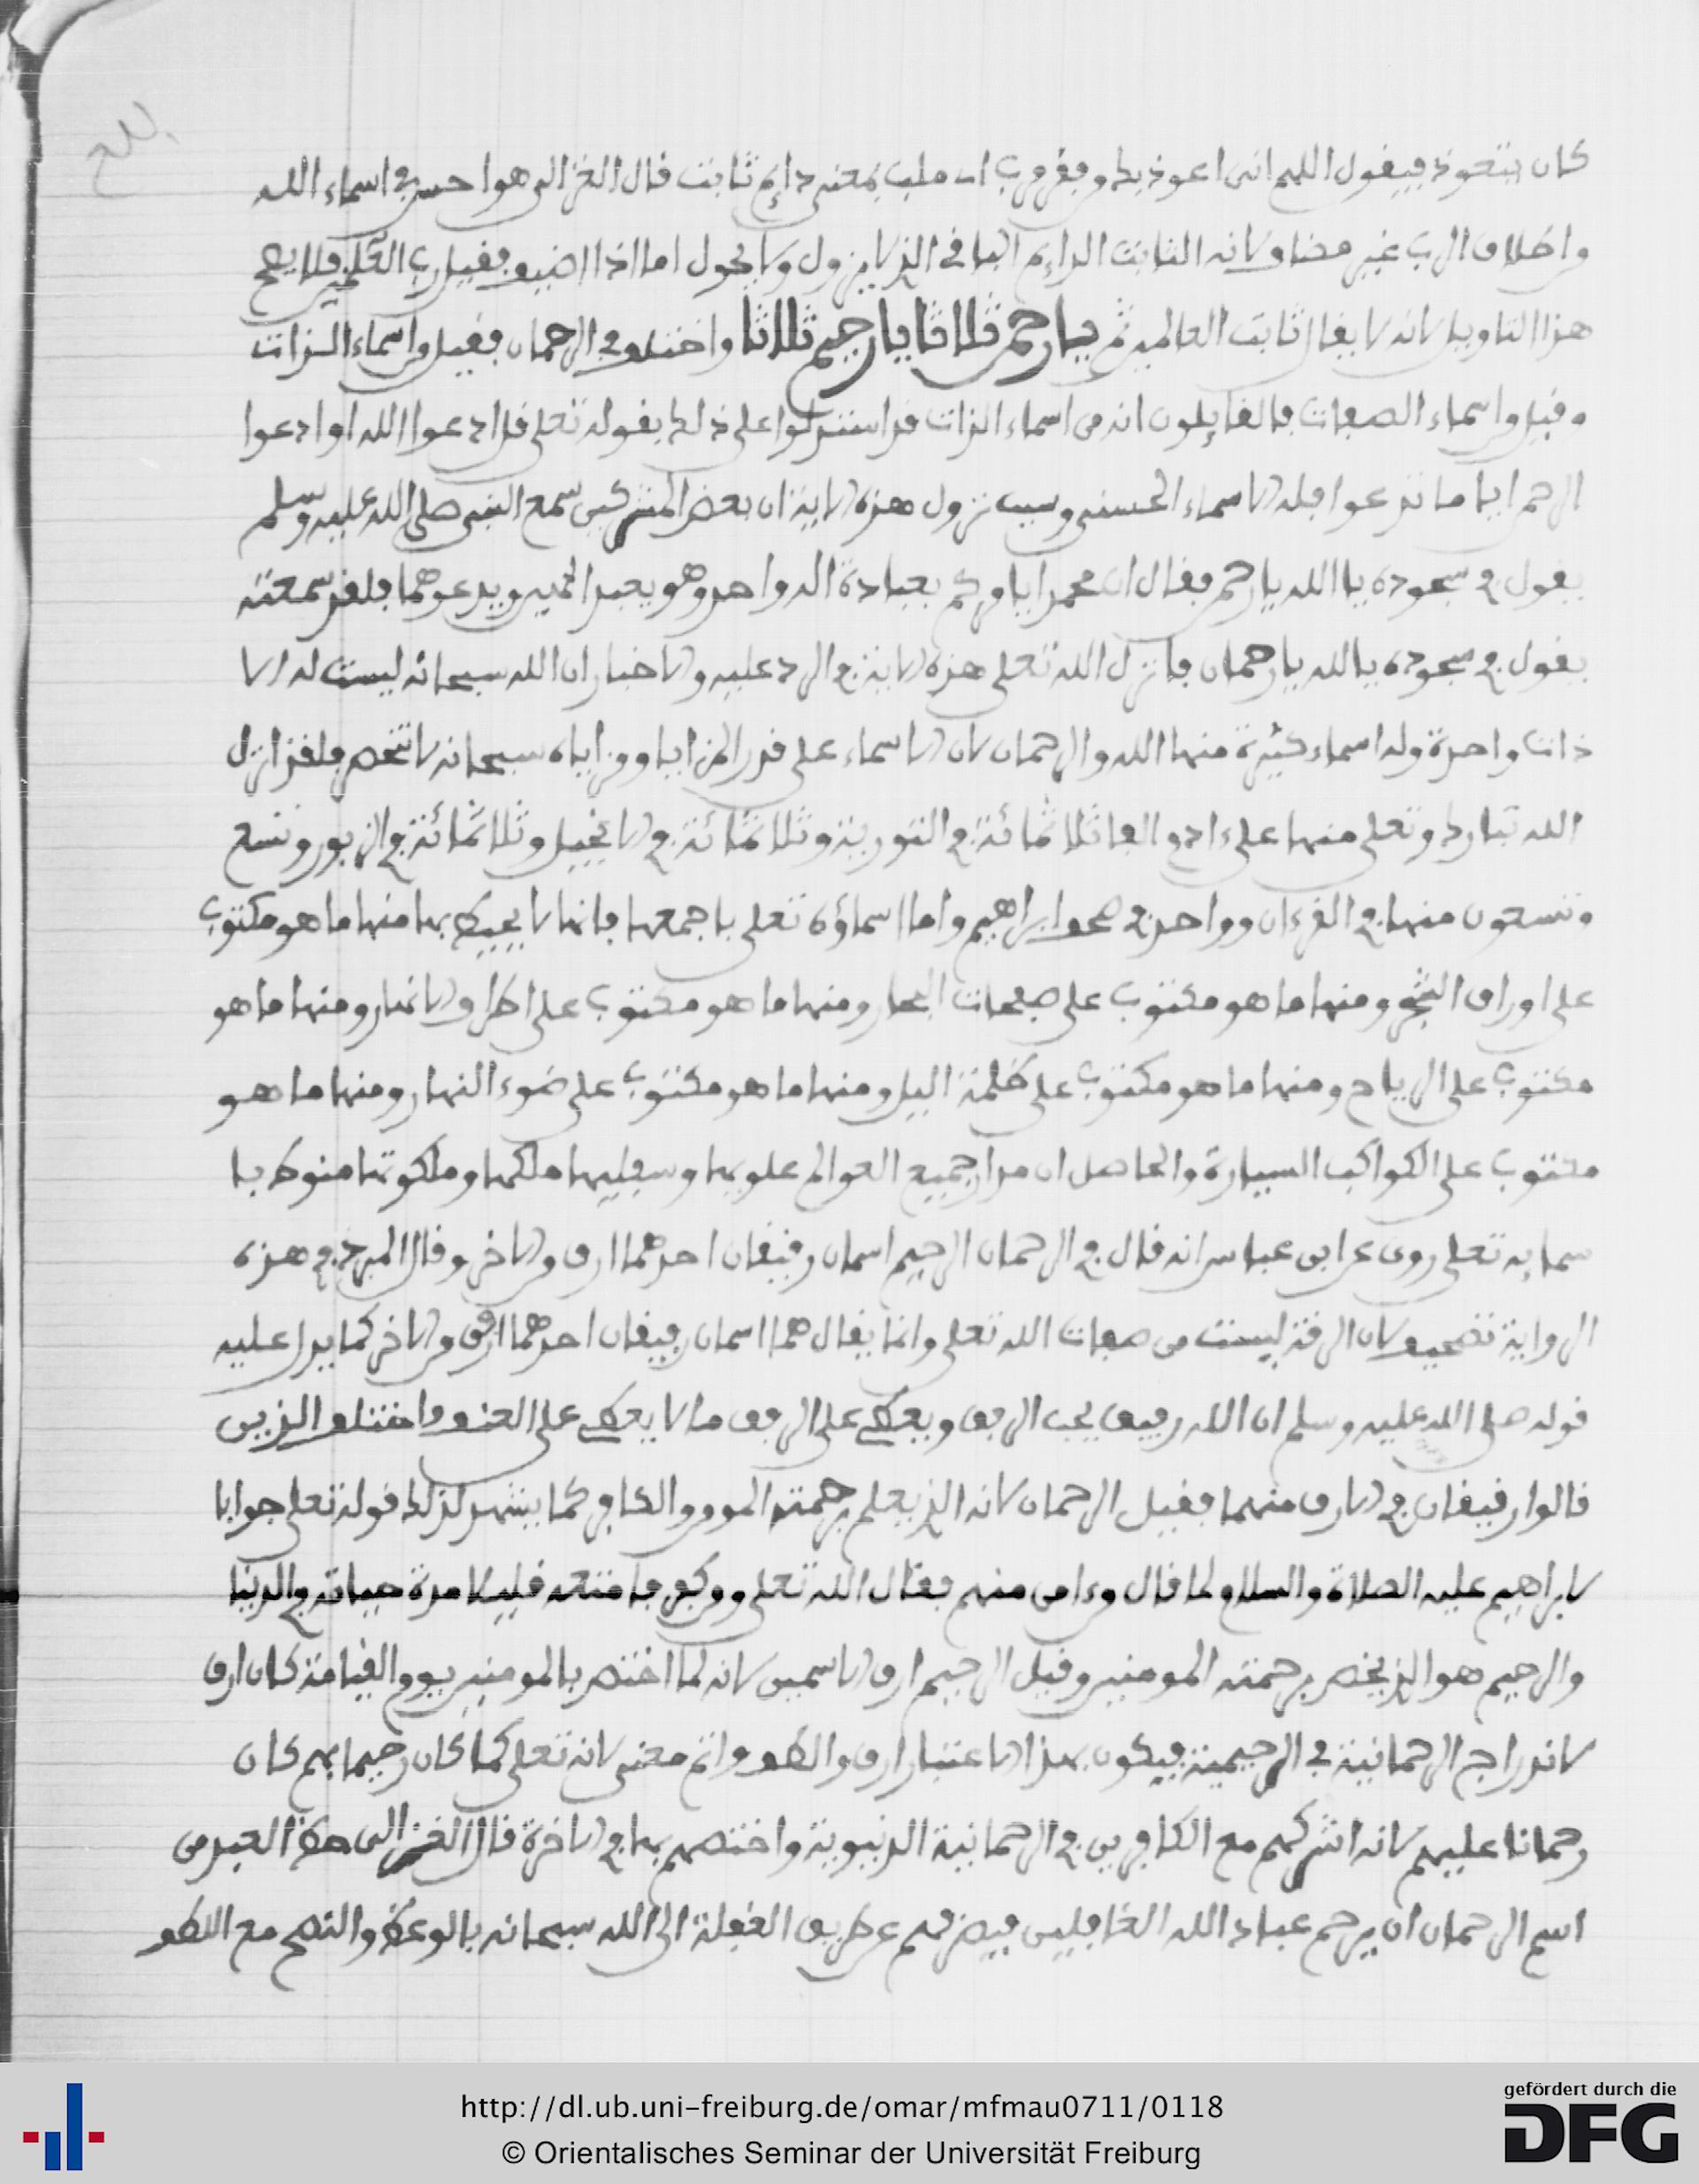 بلغ
كان يتعوذ فيقول اللهم اني اعوذ بك وفقر مرب ملب بمعنى دايم ثابت قال الغزالي هو احسن في اسماء الله
واطلاق الرب غير مضاف لانه الثابت الدايم الباقي الذي لا يزول ولا يحول اما اذا اضيف فقيل رب العلمين فلا يصح
هذا التاويل لانه لا يقال ثابت العالمين ثم يا رحمن ثلاثا يا رحيم ثلاثا واختلف في الرحمان فقيل من اسماء الذات
وقيل من اسماء الصفات فالقايلون انه من اسماء الذات قد استدلوا على ذلك بقوله تعلى قل ادعوا الله او ادعوا
الرحمن ايا ما تدعوا فله الاسماء الحسنى وسبب نزول هذه الاية ان بعض المشركين سمع النبي صلى الله عليه وسلم
يقول في سجوده يا الله يا رحمن فقال ان محمدا يامركم بعبادة اله واحد وهو يعبد الهين ويدعوهما فلقد سمعته
يقول في سجوده يا الله يا رحمان فانزل الله تعلى هذه الاية في الرد عليه والاخبار ان الله سبحانه ليست له الا
ذات واحدة وله اسماء كثيرة منها الله والرحمان لان الاسماء على قدر المزايا ومزاياه سبحانه لا تنحصر فلقد انزل
الله تبارك وتعلى منها على ءادم الفا ثلاثمائة في التورية وثلاثمائة في الانجيل وثلاثمائة في الزبور وتسع
وتسعون منها في القرءان وواحد في صحف ابراهيم واما اسماؤه تعلى باجمعها فانها لا يحيط بها منها ما هو مكتوب
على اوراق الشجر ومنها ما هو مكتوب على صفحات البحار ومنها ما هو مكتوب على اطراف الانهار ومنها ما هو
مكتوب على الرياح ومنها ما هو مكتوب على ظلمة اليل ومنها ما هو مكتوب على ضوء النهار ومنها ما هو
مكتوب على الكواكب السيارة والحاصل ان مدار جميع العوالم علويها وسفليها ملكها وملكوتها منوط با
سمايه تعلى روي عن ابن عباس انه قال في الرحمان الرحيم اسمان رقيقان احدهما ارق من الاخر وقال المبرد في هذه
الرواية تصحيف لان الرقة ليست من صفات الله تعلى وانما يقال هما اسمان رفيقان احدهما ارفق من الاخر كما يدل عليه
قوله صلى الله عليه وسلم ان الله رفيق يحب الرفق ويعطي على الرفق ما لا يعطي على العنف واختلف الذين
قالوا رقيقان في الارق منهما فقيل الرحمان لانه الذي يعلم برحمته المومن والكافر كما يشهد لذلك قوله تعلى جوابا
لابراهيم عليه الصلاة والسلام لما قال من ءامن منهم فقال الله تعلى ومن كفر فامتعه قليلا مدة حياته في الدنيا
والرحيم هو الذي يخص برحمته المومنين وقيل الرحيم ارق الاسمين لانه لما اختص بالمومنين يوم القيامة كان ارق
لاندراج الرحمانية في الرحيمية فيكون بهذا الاعتبار ارق والطف واتم معنى لانه تعلى كما كان رحيما بهم كان
رحمانا عليهم لانه اشركهم مع الكافرين في الرحمانية الدنيوية واختصهم بها في الاخرة قال الغزالي حظ العبد من
اسم الرحمان ان يرحم عباد الله الغافلين فيصرفهم عن طريق الغفلة الى الله سبحانه بالوعظ والنصح مع اللطف
http://dl.ub.uni-freiburg.de/omar/mfmau0711/0118
© Orientalisches Seminar der Universität Freiburg
gefördert durch die
DFG